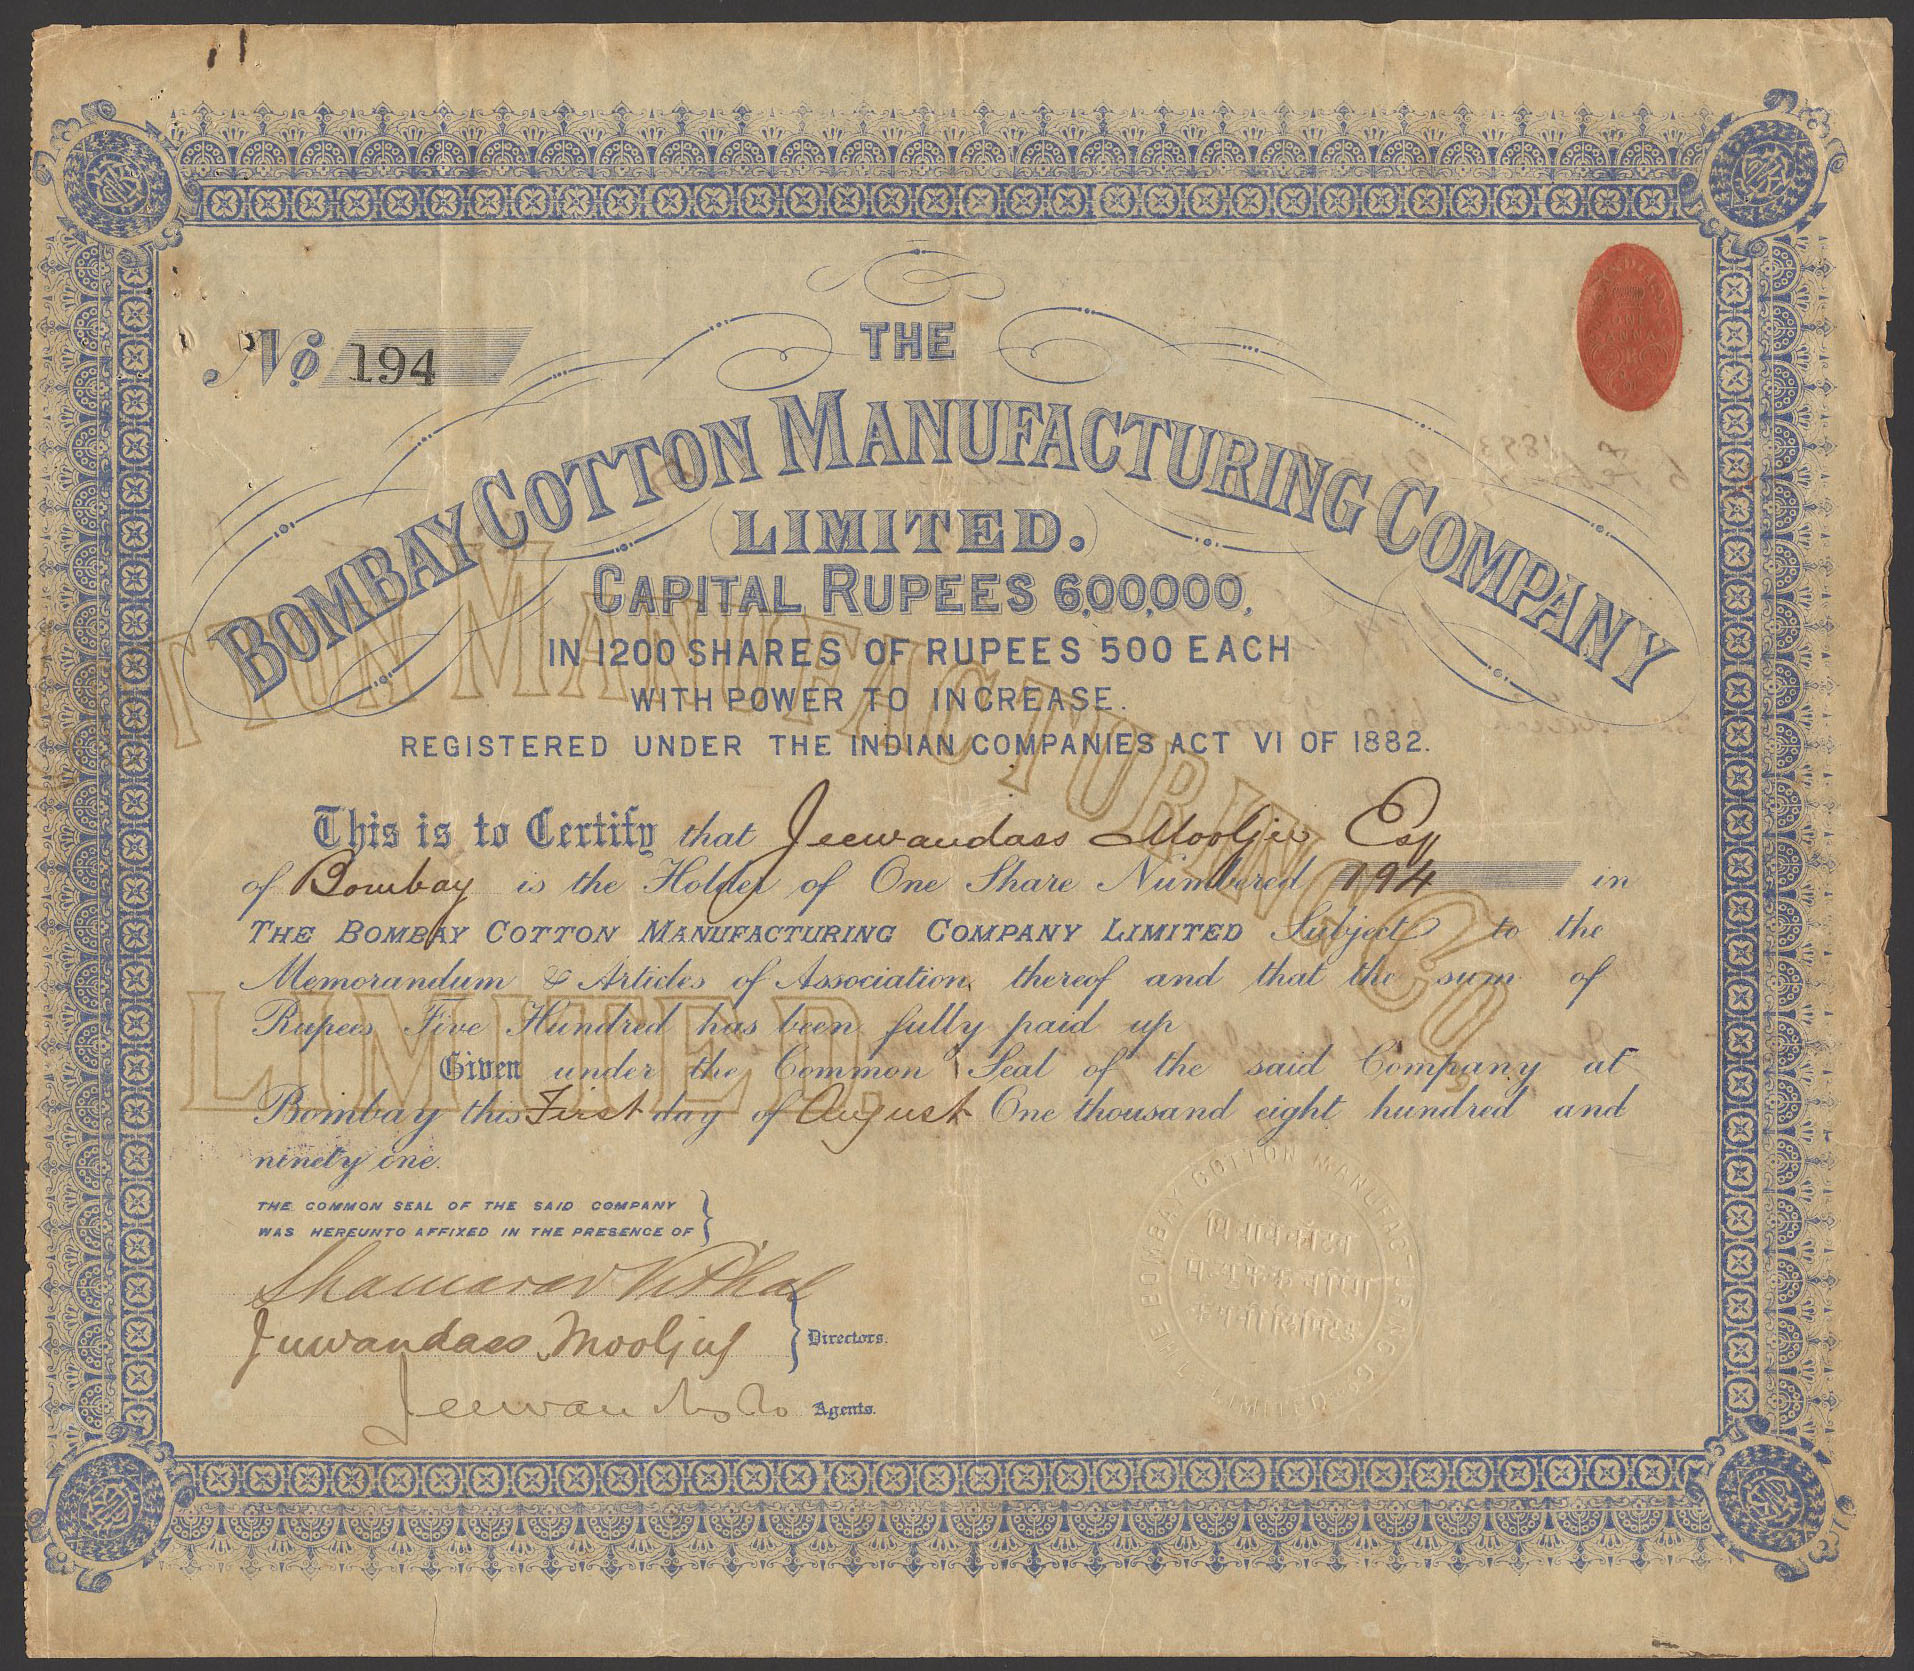 No 194
THE
BOMBAY COTTON MANUFACTURING COMPANY
(LIMITED.)
CAPITAL RUPEES 6,00,000,
IN 1200 SHARES OF RUPEES 500 EACH
WITH POWER TO INCREASE.
REGISTERED UNDER THE INDIAN COMPANIES ACT VI OF 1882.
This is to Certify that Jeewandass Mooljee Esq
of Bombay is the Holder of One Share Numbered 194 in
THE BOMBAY COTTON MANUFACTURING COMPANY LIMITED Subject to the
Memorandum & Articles of Association thereof and that the sum of
Rupees Five Hundred has been fully paid up
Given under the Common Seal of the said Company at
Bombay this First day of August One thousand eight hundred and
ninety one.
THE COMMON SEAL OF THE SAID COMPANY
WAS HEREUNTO AFFIXED IN THE PRESENCE OF
Shamarav Vithal
Jeewandass Mooljee
Directors.
Jeewan Agents.
TTON MANUFACTURING CO
LIMITED
THE BOMBAY COTTON MANUFACTURING CO LIMITED